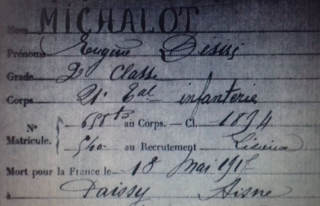 Nom MICHALOT
Prénoms Eugène Désiré
Grade 2e Classe
Corps 21e Col infanterie
No Matricule. au Corps. — Cl. 1894
540 au Recrutement
Mort pour la France le 18 Mai 1917
à Paissy Aisne